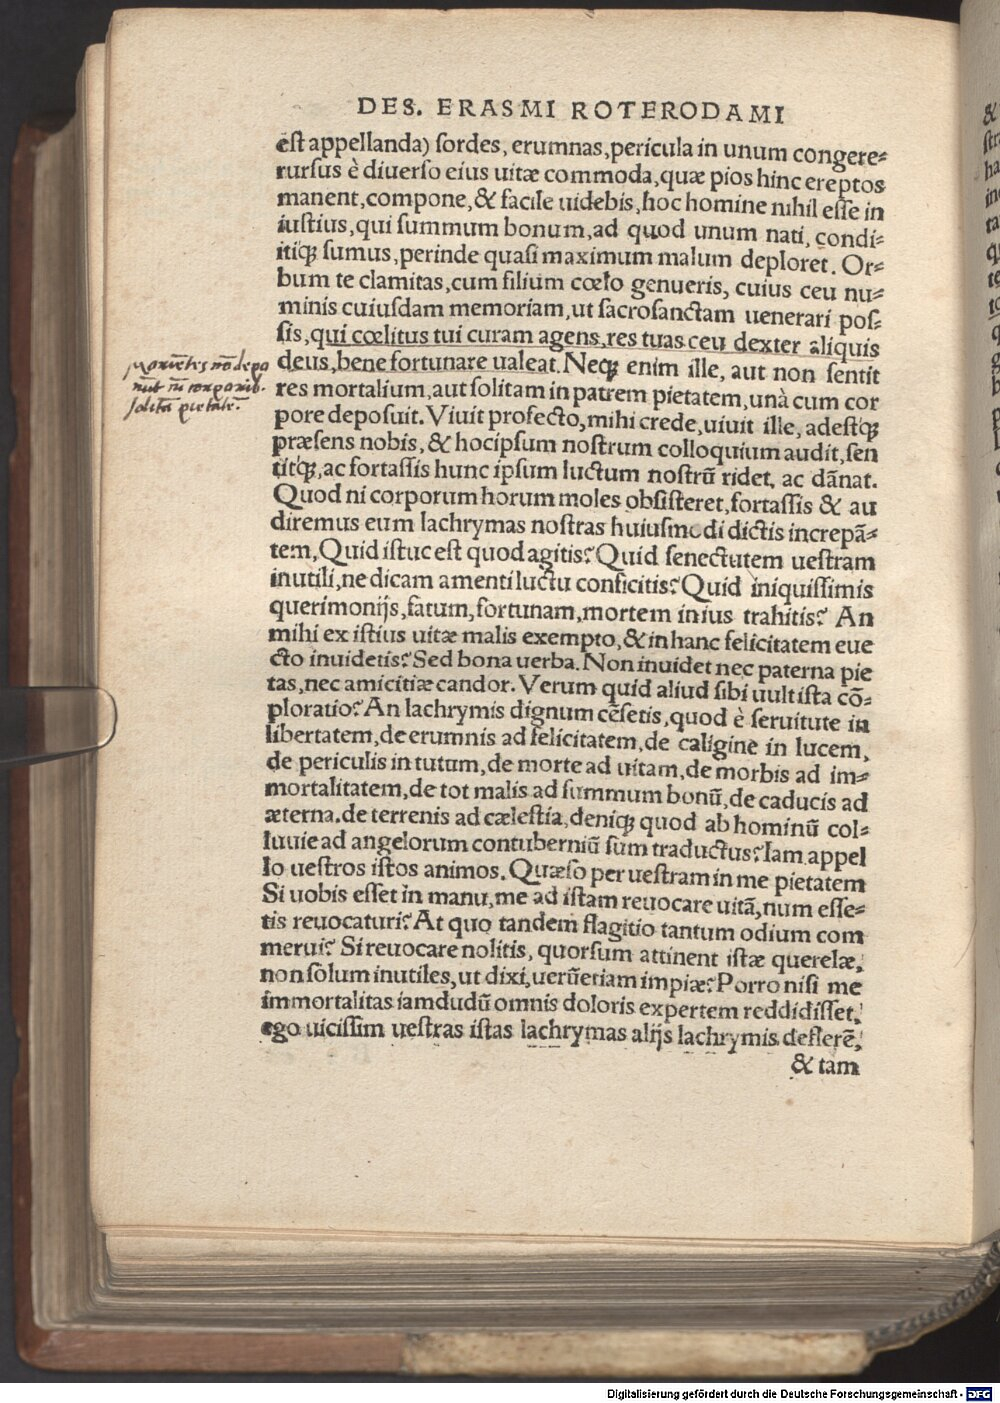 DES. ERASMI ROTERODAMI
est appellanda) sordes, erumnas, pericula in unum congere=
rursus è diuerso eius uitæ commoda, quæ pios hinc ereptos
manent, compone, & facile uidebis, hoc homine nihil esse in
iustius, qui summum bonum, ad quod unum nati, condi=
itiq́; sumus, perinde quasi maximum malum deploret. Or=
bum te clamitas, cum filium cœlo genueris, cuius ceu nu=
minis cuiusdam memoriam, ut sacrosanctam uenerari pos=
sis, qui cœlitus tui curam agens, res tuas ceu dexter aliquis
deus, bene fortunare ualeat. Neq; enim ille, aut non sentit
res mortalium, aut solitam in patrem pietatem, unà cum cor
pore deposuit. Viuit profecto, mihi crede, uiuit ille, adestq́;
præsens nobis, & hocipsum nostrum colloquium audit, sen
titq́;, ac fortassis hunc ipsum luctum nostrũ ridet, ac dãnat.
Quod ni corporum horum moles obsisteret, fortassis & au
diremus eum lachrymas nostras huiusmodi dictis increpã=
tem, Quid istuc est quod agitis? Quid senectutem uestram
inutili, ne dicam amenti luctu conficitis? Quid iniquissimis
querimonijs, fatum, fortunam, mortem in ius trahitis? An
mihi ex istius uitæ malis exempto, & in hanc felicitatem eue
cto inuidetis? Sed bona uerba. Non inuidet nec paterna pie
tas, nec amicitiæ candor. Verum quid aliud sibi uult ista cõ=
ploratio? An lachrymis dignum cẽsetis, quod è seruitute in
libertatem, de erumnis ad felicitatem, de caligine in lucem,
de periculis in tutum, de morte ad uitam, de morbis ad im=
mortalitatem, de tot malis ad summum bonũ, de caducis ad
æterna, de terrenis ad cælestia, deniq; quod ab hominũ col=
luuie ad angelorum contuberniũ sum traductus? Iam appel
lo uestros istos animos. Quæso per uestram in me pietatem
Si uobis esset in manu, me ad istam reuocare uitã, num esse=
tis reuocaturi? At quo tandem flagitio tantum odium com
merui? Si reuocare nolitis, quorsum attinent istæ querelæ,
non solum inutiles, ut dixi, uerũetiam impiæ? Porro nisi me
immortalitas iamdudũ omnis doloris expertem reddidisset,
ego uicissim uestras istas lachrymas alijs lachrymis deflerẽ,
& tam
solitã pietatẽ.
Digitalisierung gefördert durch die Deutsche Forschungsgemeinschaft - DFG